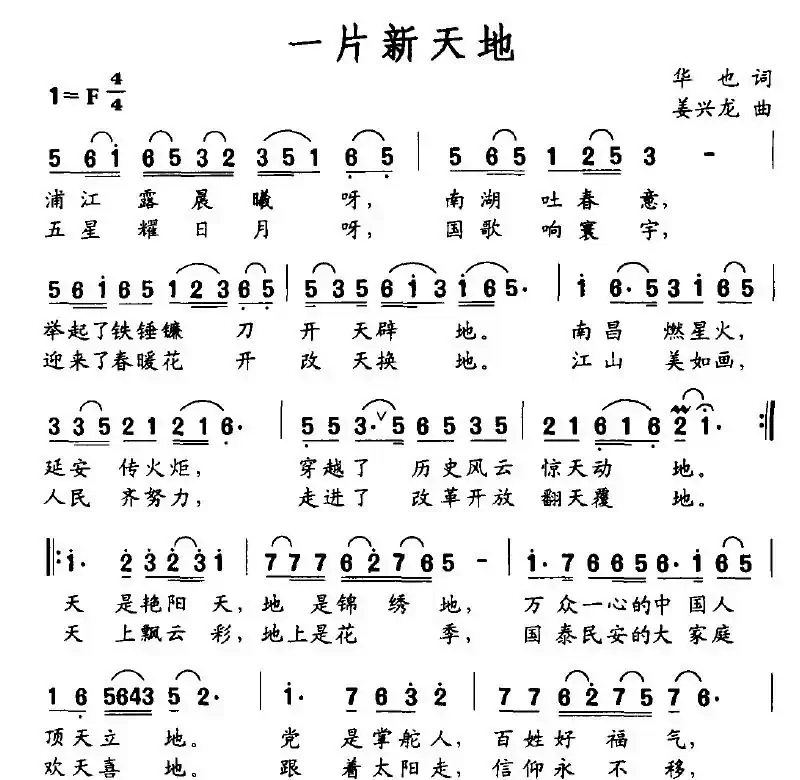 一片新天地
1=F 4/4
华也词
姜兴龙 曲
5 6i 6532 351 65 | 5 65 1 25 3 - |
浦江露晨曦呀，南湖吐春意，
五星耀日月呀，国歌响寰宇，
56i65 123 65 | 535 6i3 i65. | i 6.53i 6i3 |
举起了铁锤镰刀开天辟地。南昌燃星火，
迎来了春暖花开改天换地。江山美如画，
335 21 216. | 553.5 6535 | 21616 2 1. :|
延安传火炬，穿越了历史风云惊天动地。
人民齐努力，走进了改革开放翻天覆地。
|: i. 2323i | 777 6276 5 - | i.7 6656.i65 |
天是艳阳天，地是锦绣地，万众一心的中国人
天上飘云彩，地上是花季，国泰民安的大家庭
16 5643 52. | i. 7632 | 77 6275 76. |
顶天立地。党是掌舵人，百姓好福气，
欢天喜地。跟着太阳走，信仰永不移，